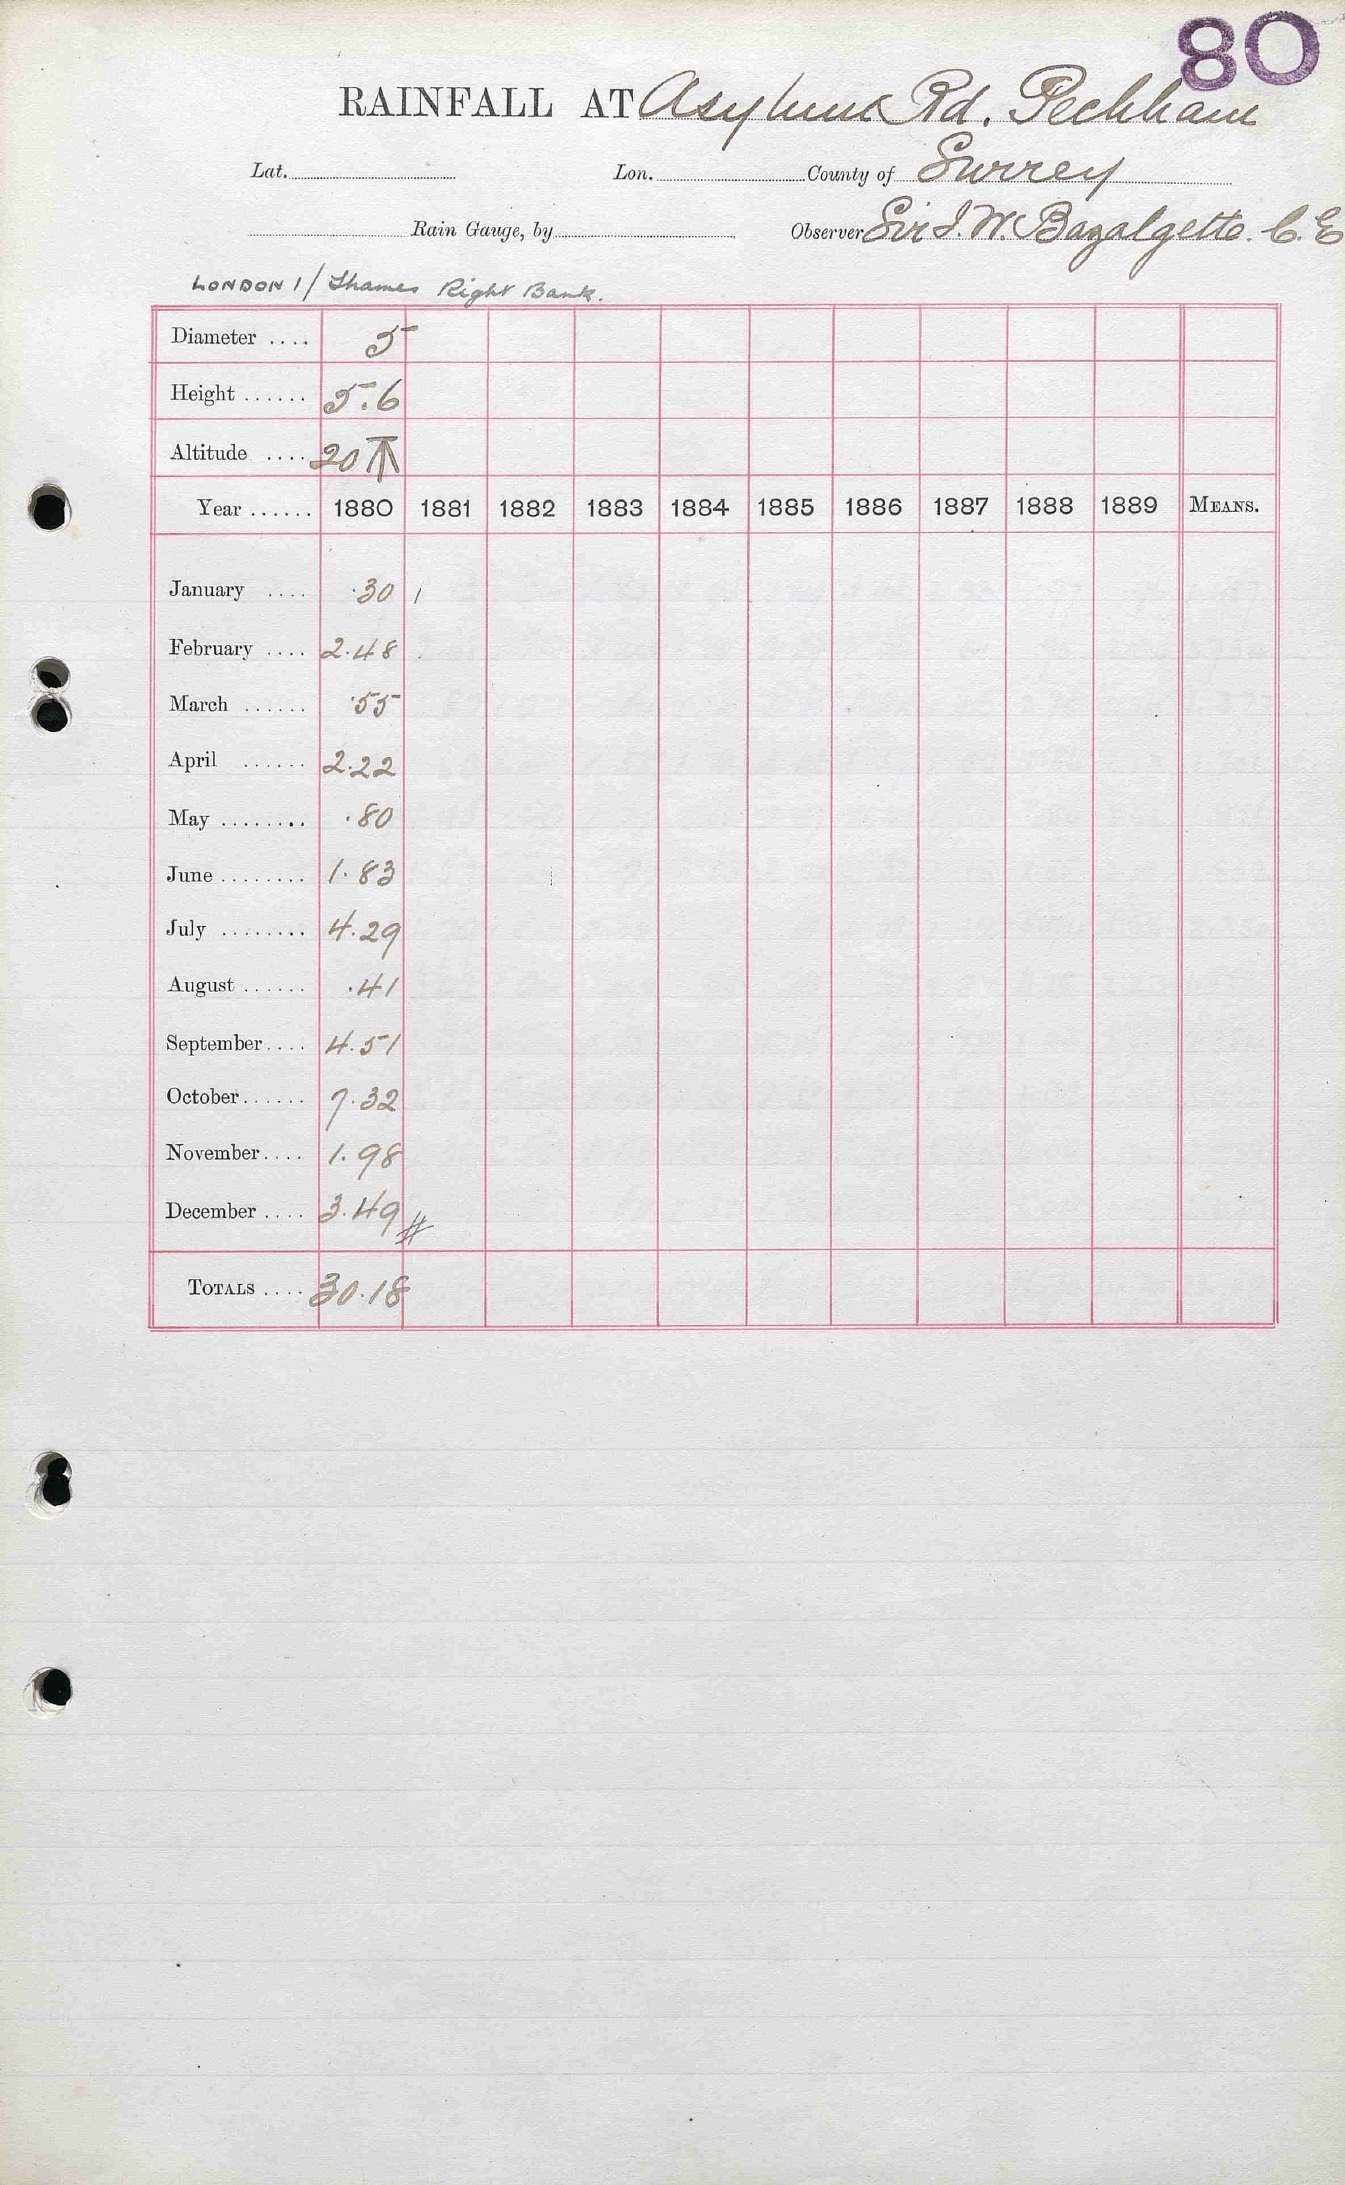 80
RAINFALL AT Asylum Rd. Peckham
Lat. Lon. County of Surrey
Rain Gauge, by Observer Sir J. W. Bazalgette. C. E
LONDON 1/ Thames Right Bank.
Diameter .... 5
Height ...... 5.6
Altitude .... 20
Year ...... 1880 1881 1882 1883 1884 1885 1886 1887 1888 1889 MEANS.
January .... .30
February .... 2.48
March ...... .55
April ...... 2.22
May ........ .80
June ........ 1.83
July ........ 4.29
August ...... .41
September .... 4.51
October ...... 7.32
November .... 1.98
December .... 3.49
TOTALS .... 30.18